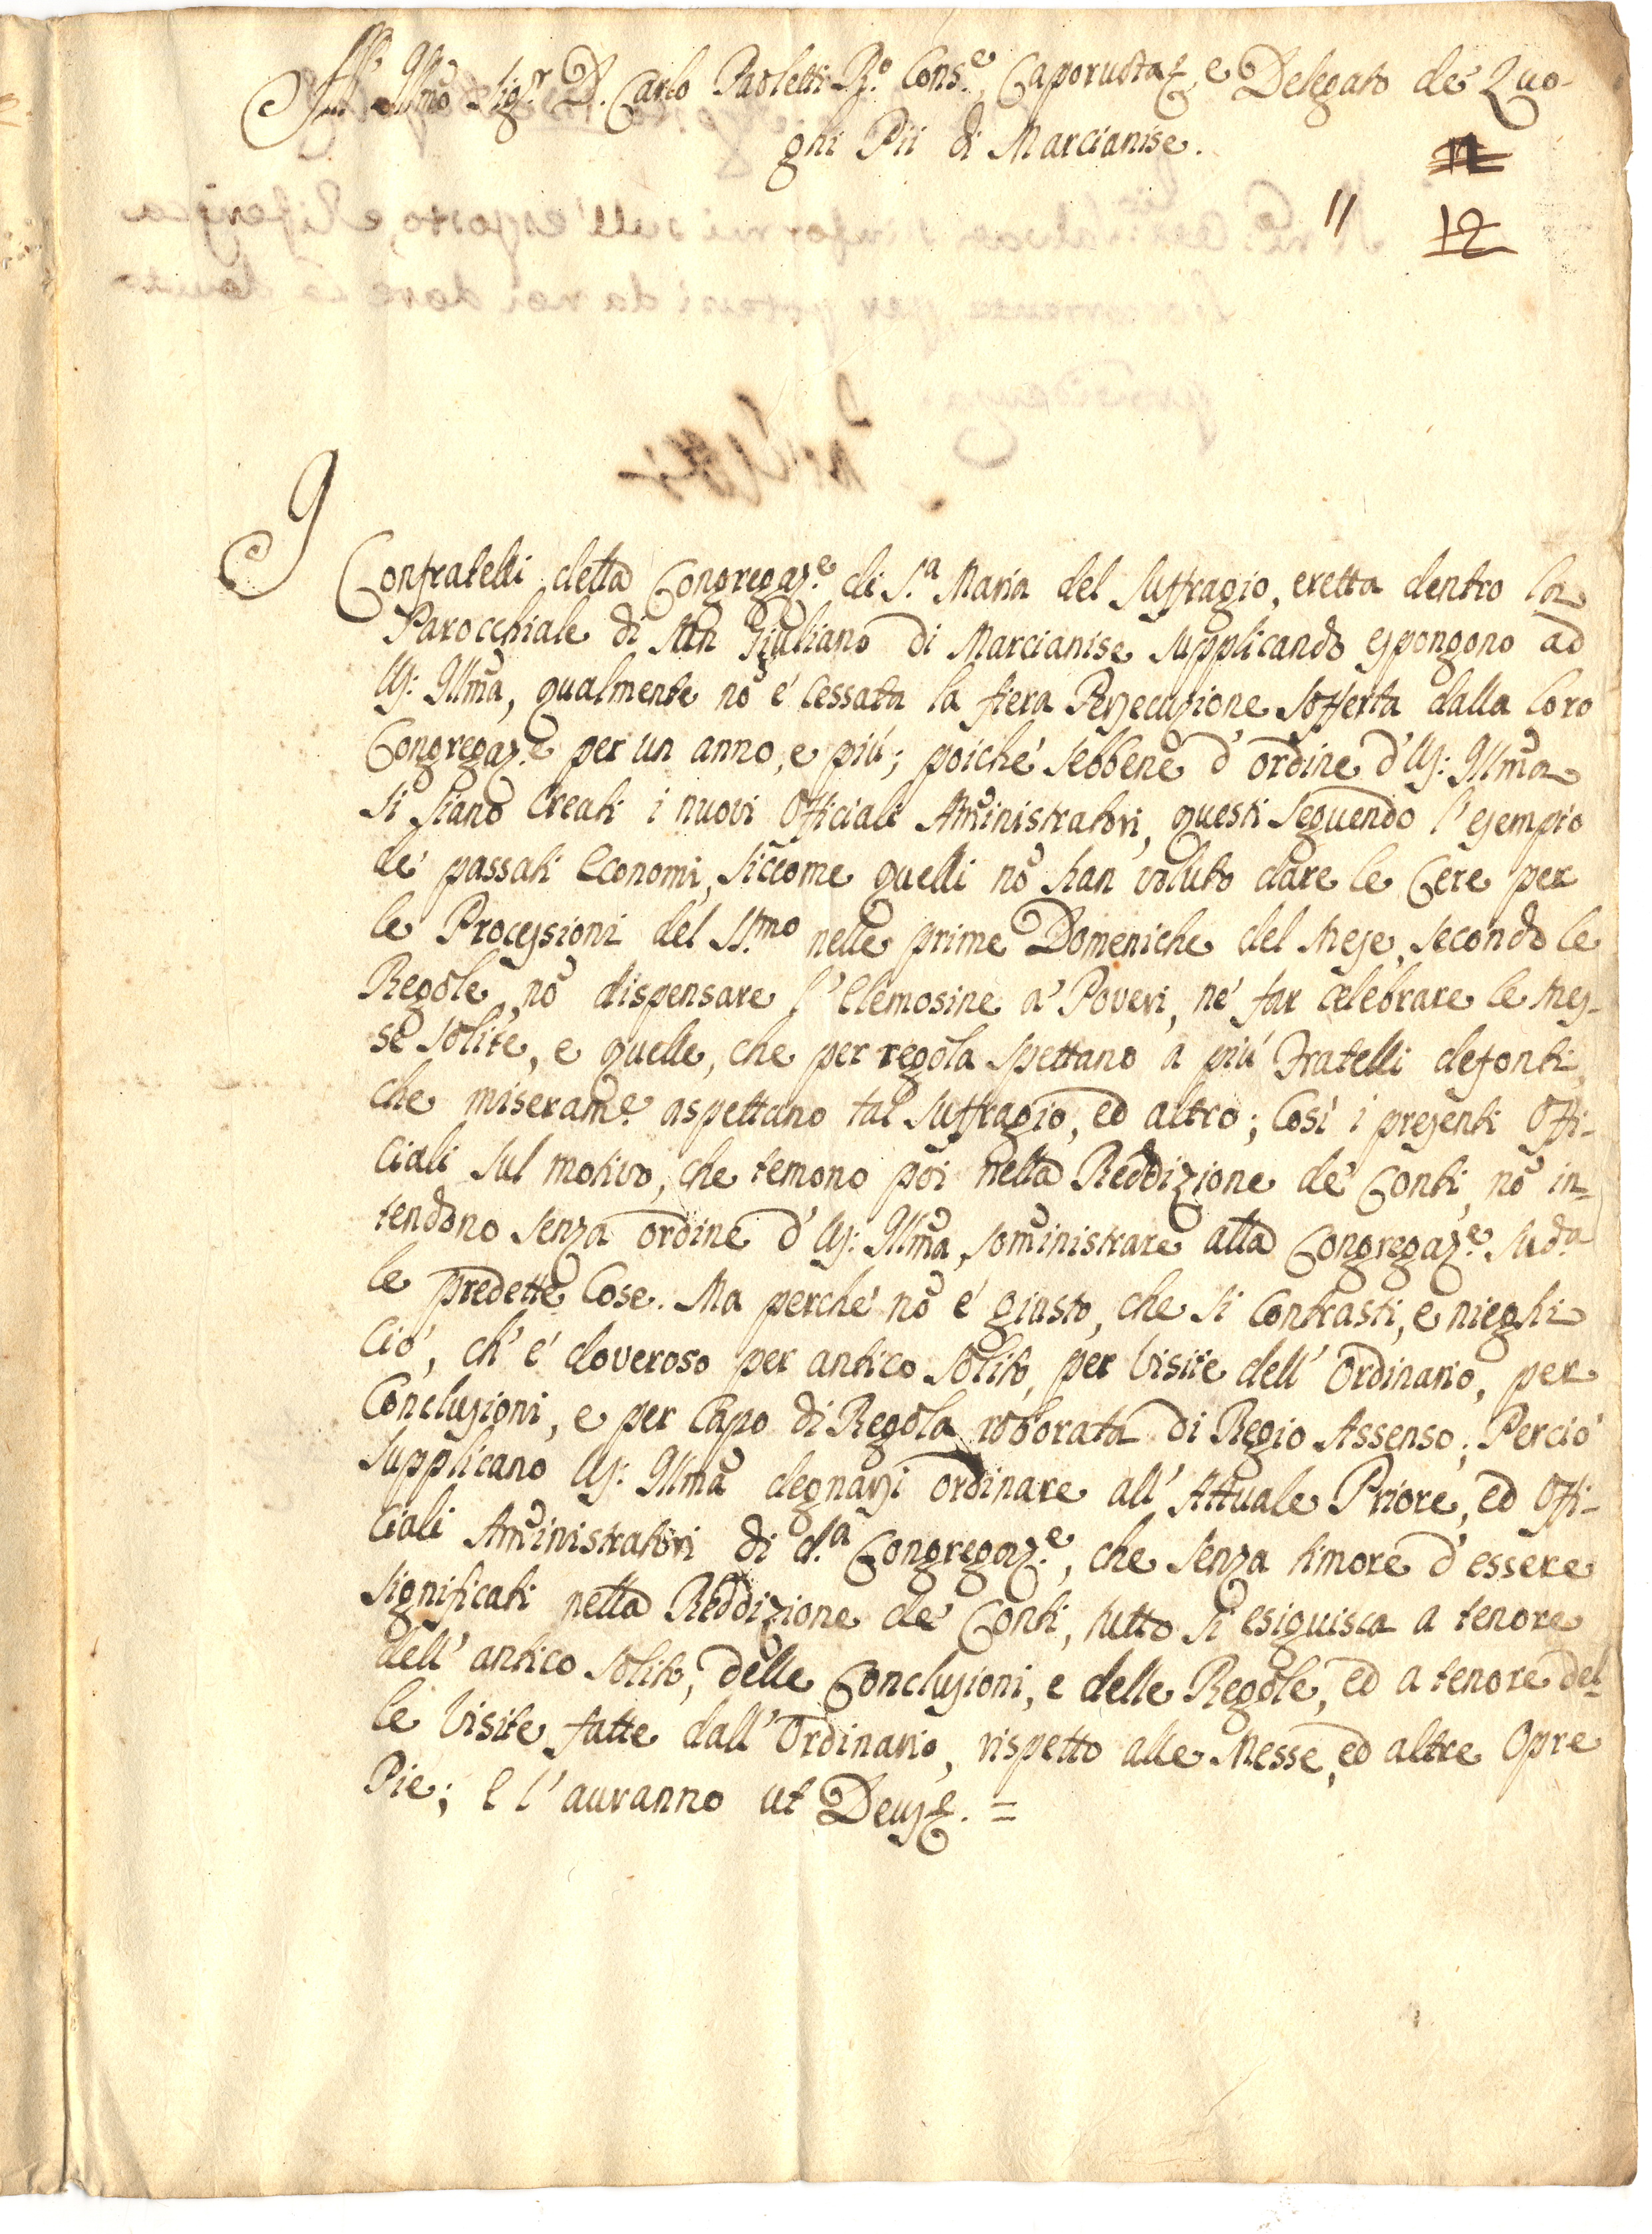 All' Illmõ Sig.r D. Carlo Paoletti R.o Cons.e, Caporuota, e Delegato de' Luo-
ghi Pii di Marcianise.
11
12
I Confratelli della Congregaz.e di S.a Maria del Suffragio, eretta dentro la
Parocchiale di San Giuliano di Marcianise supplicando espongono ad
VS: Illmã, qualmente nõ é cessata la fiera Persecuzione sofferta dalla loro
Congregaz.e per un anno, e piú; poiché sebbene d' ordine d' VS: Illmã
si siano creati i nuovi Officiali Amĩnistratori, questi seguendo l' esempio
de' passati Economi, siccome quelli nõ han voluto dare le Cere per
le Processioni del SS.mo nelle prime Domeniche del Mese, secondo le
Regole, nõ dispensare l' Elemosine a' Poveri, né far celebrare le Mes-
se solite, e quelle, che per regola spettano a piú Fratelli defonti,
che miseram.e aspettano tal Suffragio, ed altro; Cosí i presenti Offi-
ciali sul motivo, che temono poi nella Reddizione de' Conti, nõ in-
tendono senza ordine d' VS: Illmã, somĩnistrare alla Congregaz.e sud.a
le predette Cose. Ma perche' nõ é giusto, che si contrasti, e nieghi
ció, ch' é doveroso per antico solito, per Visite dell' Ordinario, per
Conclusioni, e per Capo di Regola roborata di Regio Assenso; Perció
supplicano VS: Illmã degnarsi ordinare all' Attuale Priore, ed Offi-
ciali Amĩnistratori di d.a Congregaz.e, che senza timore d' essere
significati nella Reddizione de' Conti, tutto si esiguisca a tenore
dell' antico solito, delle Conclusioni, e delle Regole, ed a tenore del-
le Visite fatte dall' Ordinario, rispetto alle Messe, ed altre Opre
Pie; E l' auranno ut Deus &. =